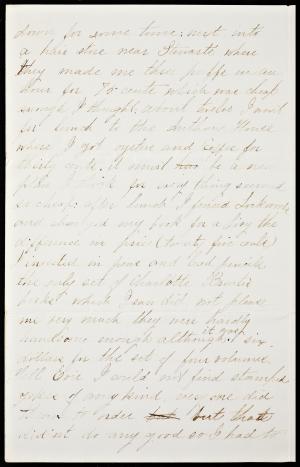 down for some time; next into
a hair store near Stewarts, where
they made me three puffs in an
hour for 75 cents which was cheap
enough I thought; about twelve I went
for lunch to the Anthony House
where I got oysters and coffee for
thirty cents. it must be a new
place I think for every thing seemed
so cheap; after lunch I
and changed my book for a boy the
difference in price (twenty five cents)
I invested in pens and lead pencils
the only set of Charlotte Bronte's
books which I saw did not please
me very much they were hardly
handsome enough although it was six
dollars for the set of four volumes.
Tell Evie I could not find stamped
paper of any kind, every one did
them to order but that
did'nt do any good so I had to